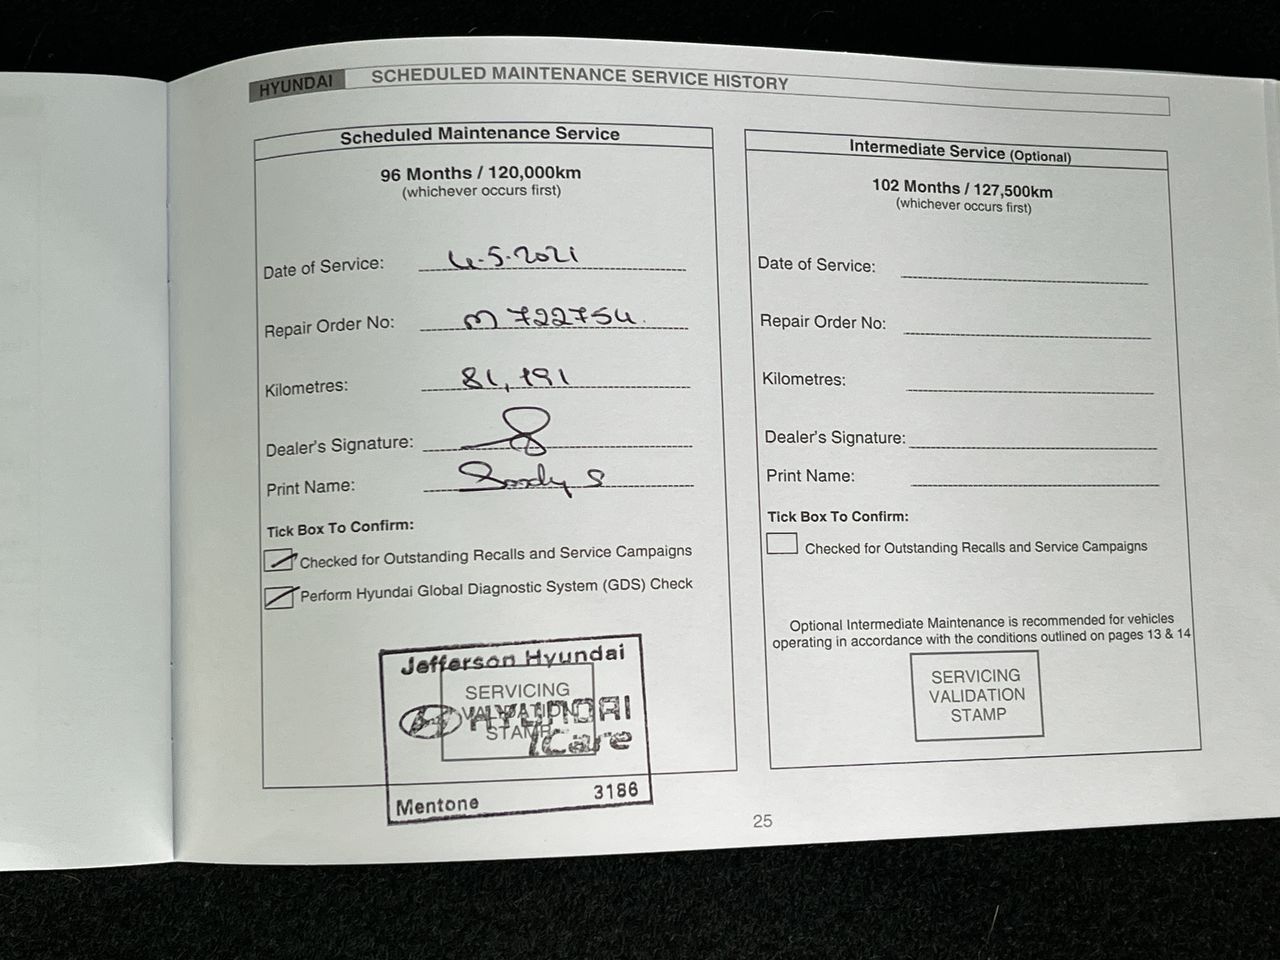 HYUNDAI SCHEDULED MAINTENANCE SERVICE HISTORY
Scheduled Maintenance Service
96 Months / 120,000km
(whichever occurs first)
Date of Service: 4.5.2021
Repair Order No: M 722754
Kilometres: 81,191
Dealer's Signature:
Print Name: S
Tick Box To Confirm:
Checked for Outstanding Recalls and Service Campaigns
Perform Hyundai Global Diagnostic System (GDS) Check
Jefferson Hyundai
SERVICING
VALIDATION
STAMP
HYUNDAI
iCare
Mentone 3186
Intermediate Service (Optional)
102 Months / 127,500km
(whichever occurs first)
Date of Service:
Repair Order No:
Kilometres:
Dealer's Signature:
Print Name:
Tick Box To Confirm:
Checked for Outstanding Recalls and Service Campaigns
Optional Intermediate Maintenance is recommended for vehicles
operating in accordance with the conditions outlined on pages 13 & 14
SERVICING
VALIDATION
STAMP
25